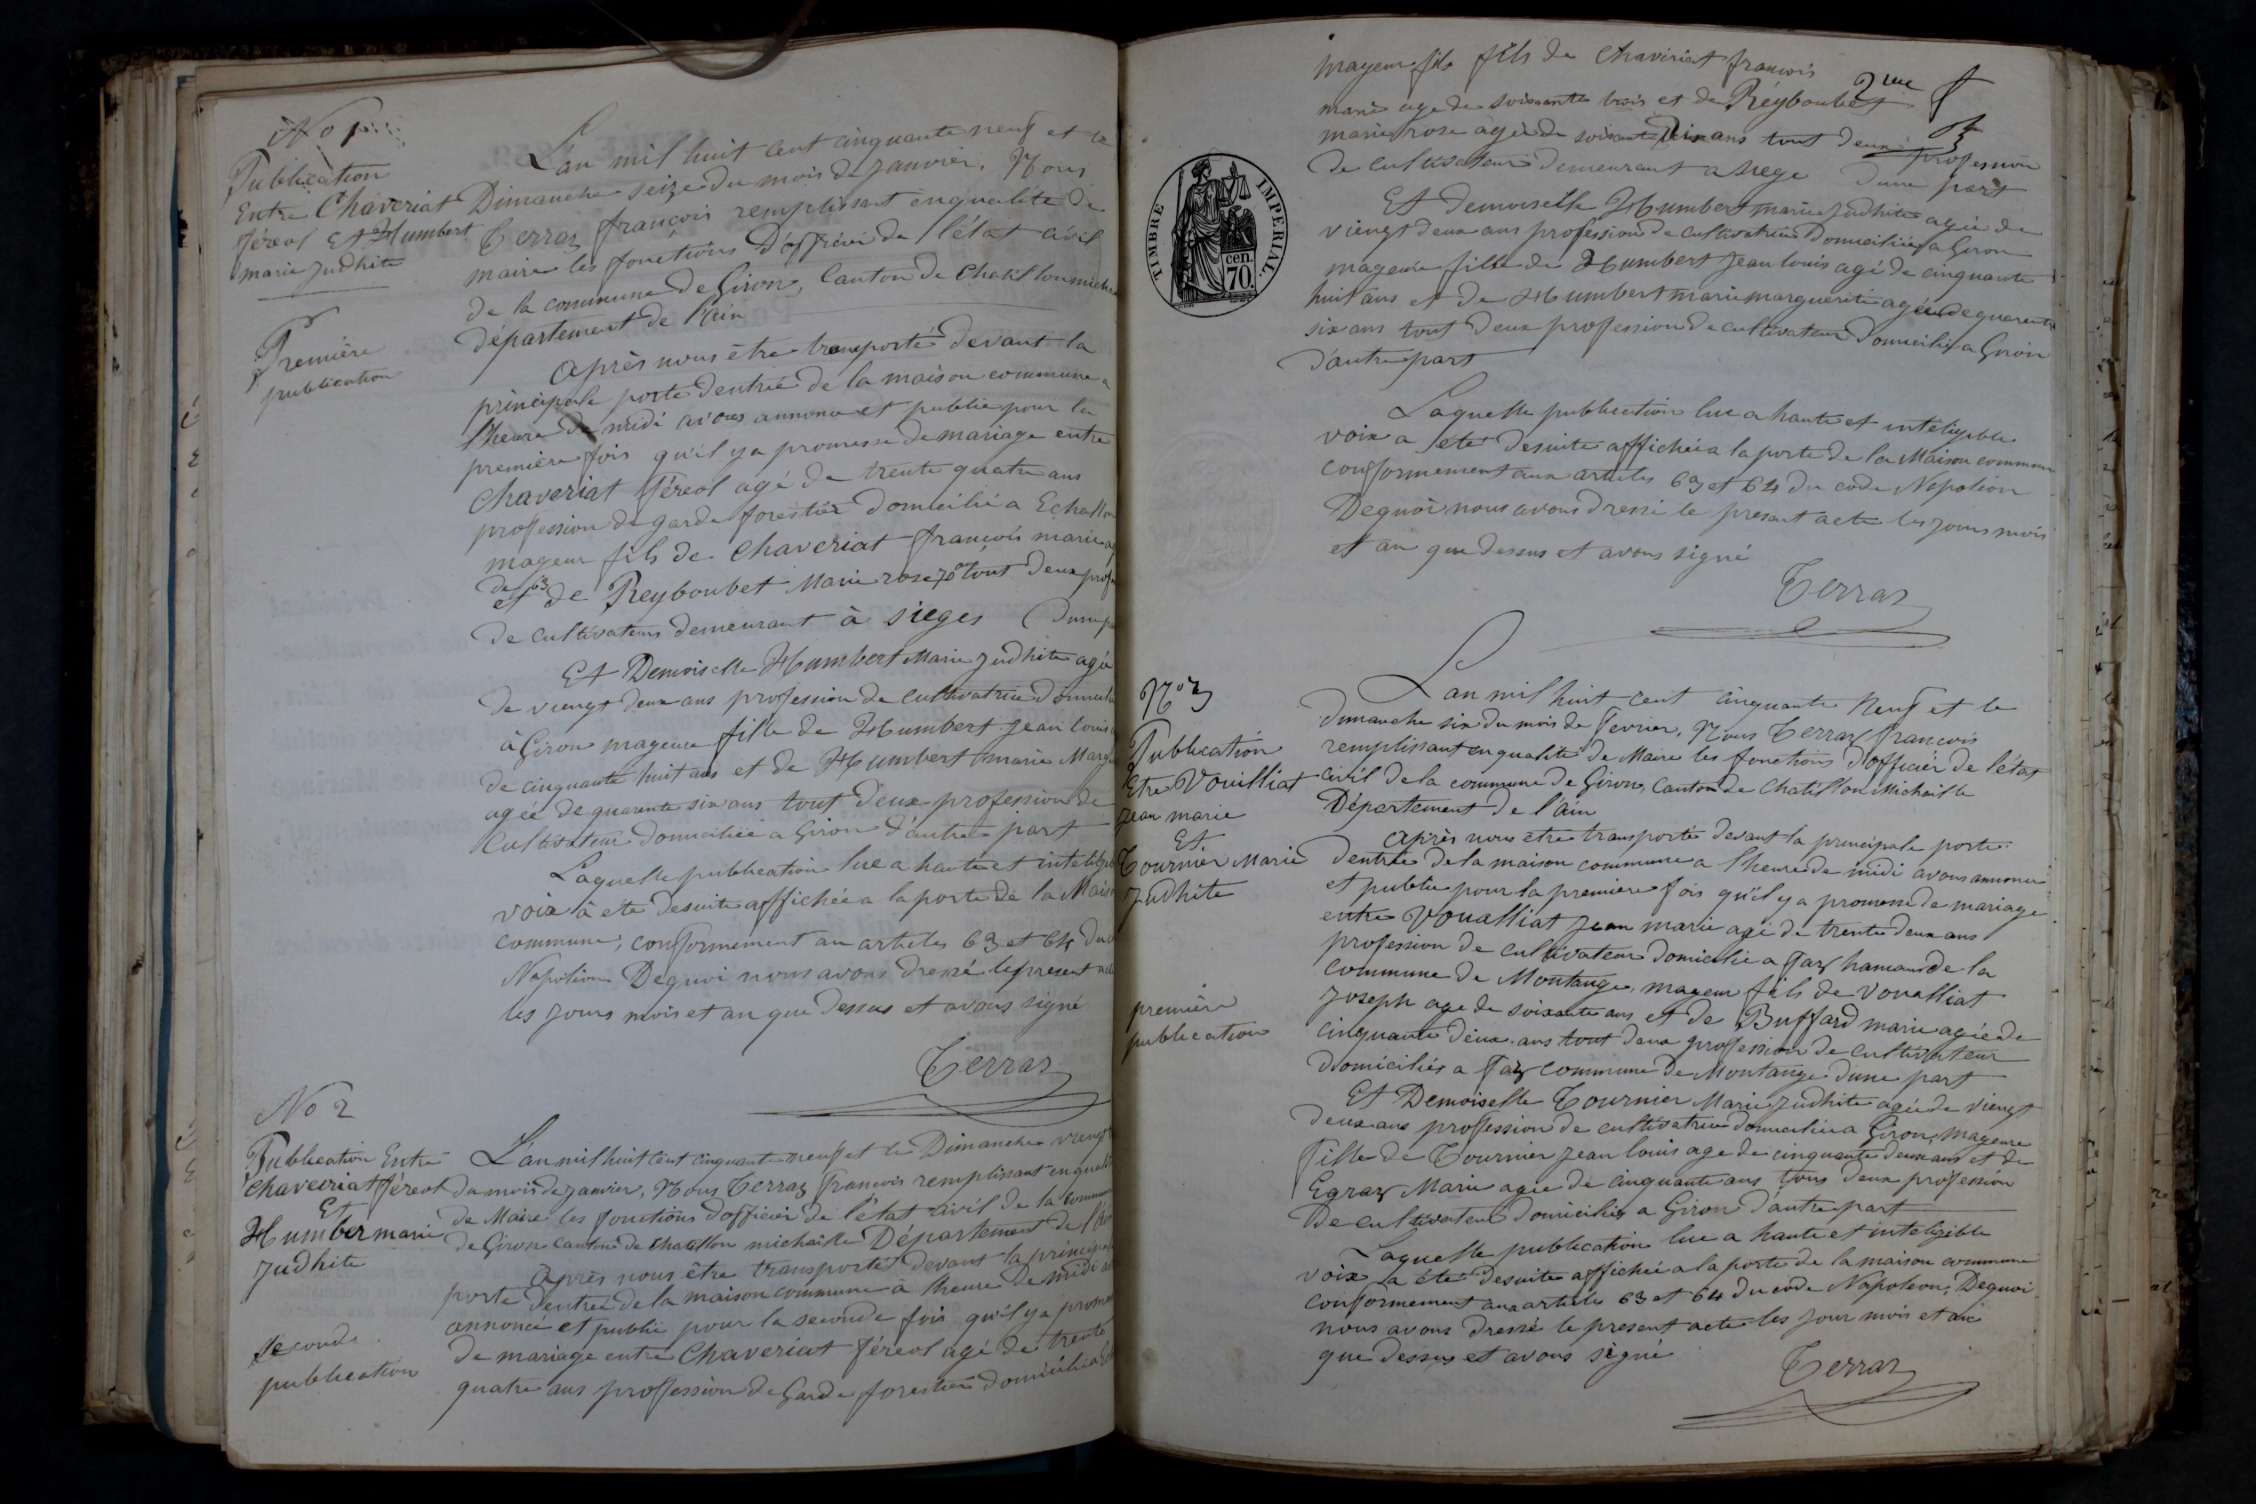 No 1
Publication
Entre Chaveriat
féreol Et Humbert
marie Judhite
Première
publication
L'an mil huit cent cinquante neuf et le
Dimanche seize du mois de Janvier, Nous
Terraz françois remplissant enqualité de
maire les fonctions D'officier de l'état civil
de la commune de Giron, Canton de Chatillonmich
département de l'ain
Après nous être transporté devant la
principale porte dentrée de la maison commune a
l'heure de midi avons annoncé et publié pour la
première fois qu'il ya promesse de mariage entre
Chaveriat féreol agé de trente quatre ans
profession de garde forestier domicilié a Echallon
mageur fils de Chaveriat françois marie ag
de 63
et de Reyboubet Marie rose 70 tout deux prof
de cultivateurs demeurant à sieges Dune p
Et Demoiselle Humbert Marie Judhite agée
de viengt deux ans profession de cultivatrice domicilié
à Giron mageure fille de Humbert Jean louis
de cinquante huit ans et de Humbert marie Marg
agée de quarente six ans tout deux profession de
Cultivateur domiciliée a Giron d'autre part
Laquelle publication lue a haute et inteligi
voix à été desuite affichée a la porte de la Mais
commune, conformement au articles 63 et 64 du
Napoléon Dequoi nous avons dressé le present act
les jours mois et an que dessus et avons signé
Terraz
No 2
Publication Entre
Chaveriat féreol
Et
Humber marie
Judhite
seconde
publication
L'an mil huit cent cinquante neuf et le Dimanche viengt
du mois de janvier, Nous Terraz francois remplissant enqualité
de Maire les fonctions dofficier de l'état civil de la commune
de Giron canton de Chatillon michaille Département de l'Ain
Après nous être transporté devant la principale
porte dentrée de la maison commune à lheure de midi a
annoncé et publié pour la seconde fois qu'il ya prom
de mariage entre Chaveriat féreol agé de trente
quatre ans proffession de Garde forestier domicilié a Ech
mageur fils fils de Chaveriat francois
marie age de soixante trois et de Reyboubet
2me
marie rose agée de soixante Dix ans tout deux profession
de cultivateur demeurant a siege dune part
TIMBRE IMPERIAL.
70.
cen.
Et demoiselle Humbert marie Judhite agée de
viengt deux ans profession de cultivatrice Domiciliée a Giron
mageure fille de Humbert Jean louis agé de cinquante
huit ans et de Humbert marie marguerite agée de quarente
six ans tout deux profession de cultivateur domicilié a Giron
d'autre part
Laquelle publication lue a haute et inteligible
voix a été desuite affichée a la porte de la Maison commune
conformement aux articles 63 et 64 du code Napoléon
Dequoi nous avons dressé le present acte les jours mois
et an que dessus et avons signé
Terraz
No 3
Publication
Etre Vouilliat
Jean marie
Et
Tournier Marie
Judhite
première
publication
Lan mil huit cent cinquante Neuf et le
dimanche six du mois de fevrier, Nous Terraz francois
remplissant en qualité de Maire les fonctions d'officier de l'état
civil de la commune de Giron, Canton de Chatillon Michaille
Département de l'Ain
Après nous etre transporté devant la principale porte
dentrée de la maison commune a l'heure de midi avons annoncé
et publié pour la premiere fois qu'il ya promesse de mariage
entre Vouilliat Jean marie agé de trente deux ans
profession de cultivateur domicilié a Fay hamau de la
commune de Montange, mageur fils de Vouilliat
Joseph age de soixante ans et de Buffard marie agée de
cinquante deux ans tout deux profession de cultivateur
domiciliés a Fay commune de Montange dune part
Et Demoiselle Tournier Marie Judhite agée de viengt
deux ans profession de cultivatrice domiciliée a Giron, mageure
fille de Tournier Jean louis age de cinquante deux ans et de
Egraz Marie agée de cinquante ans tous deux profession
de cultivateur domiciliés a Giron d'autre part
Laquelle publication lue a haute et inteligible
voix a été desuite affichée a la porte de la maison commune
conformement aux articles 63 et 64 du code Napoleon, Dequoi
nous avons dressé le present acte les jour mois et an
que dessus et avons signé
Terraz